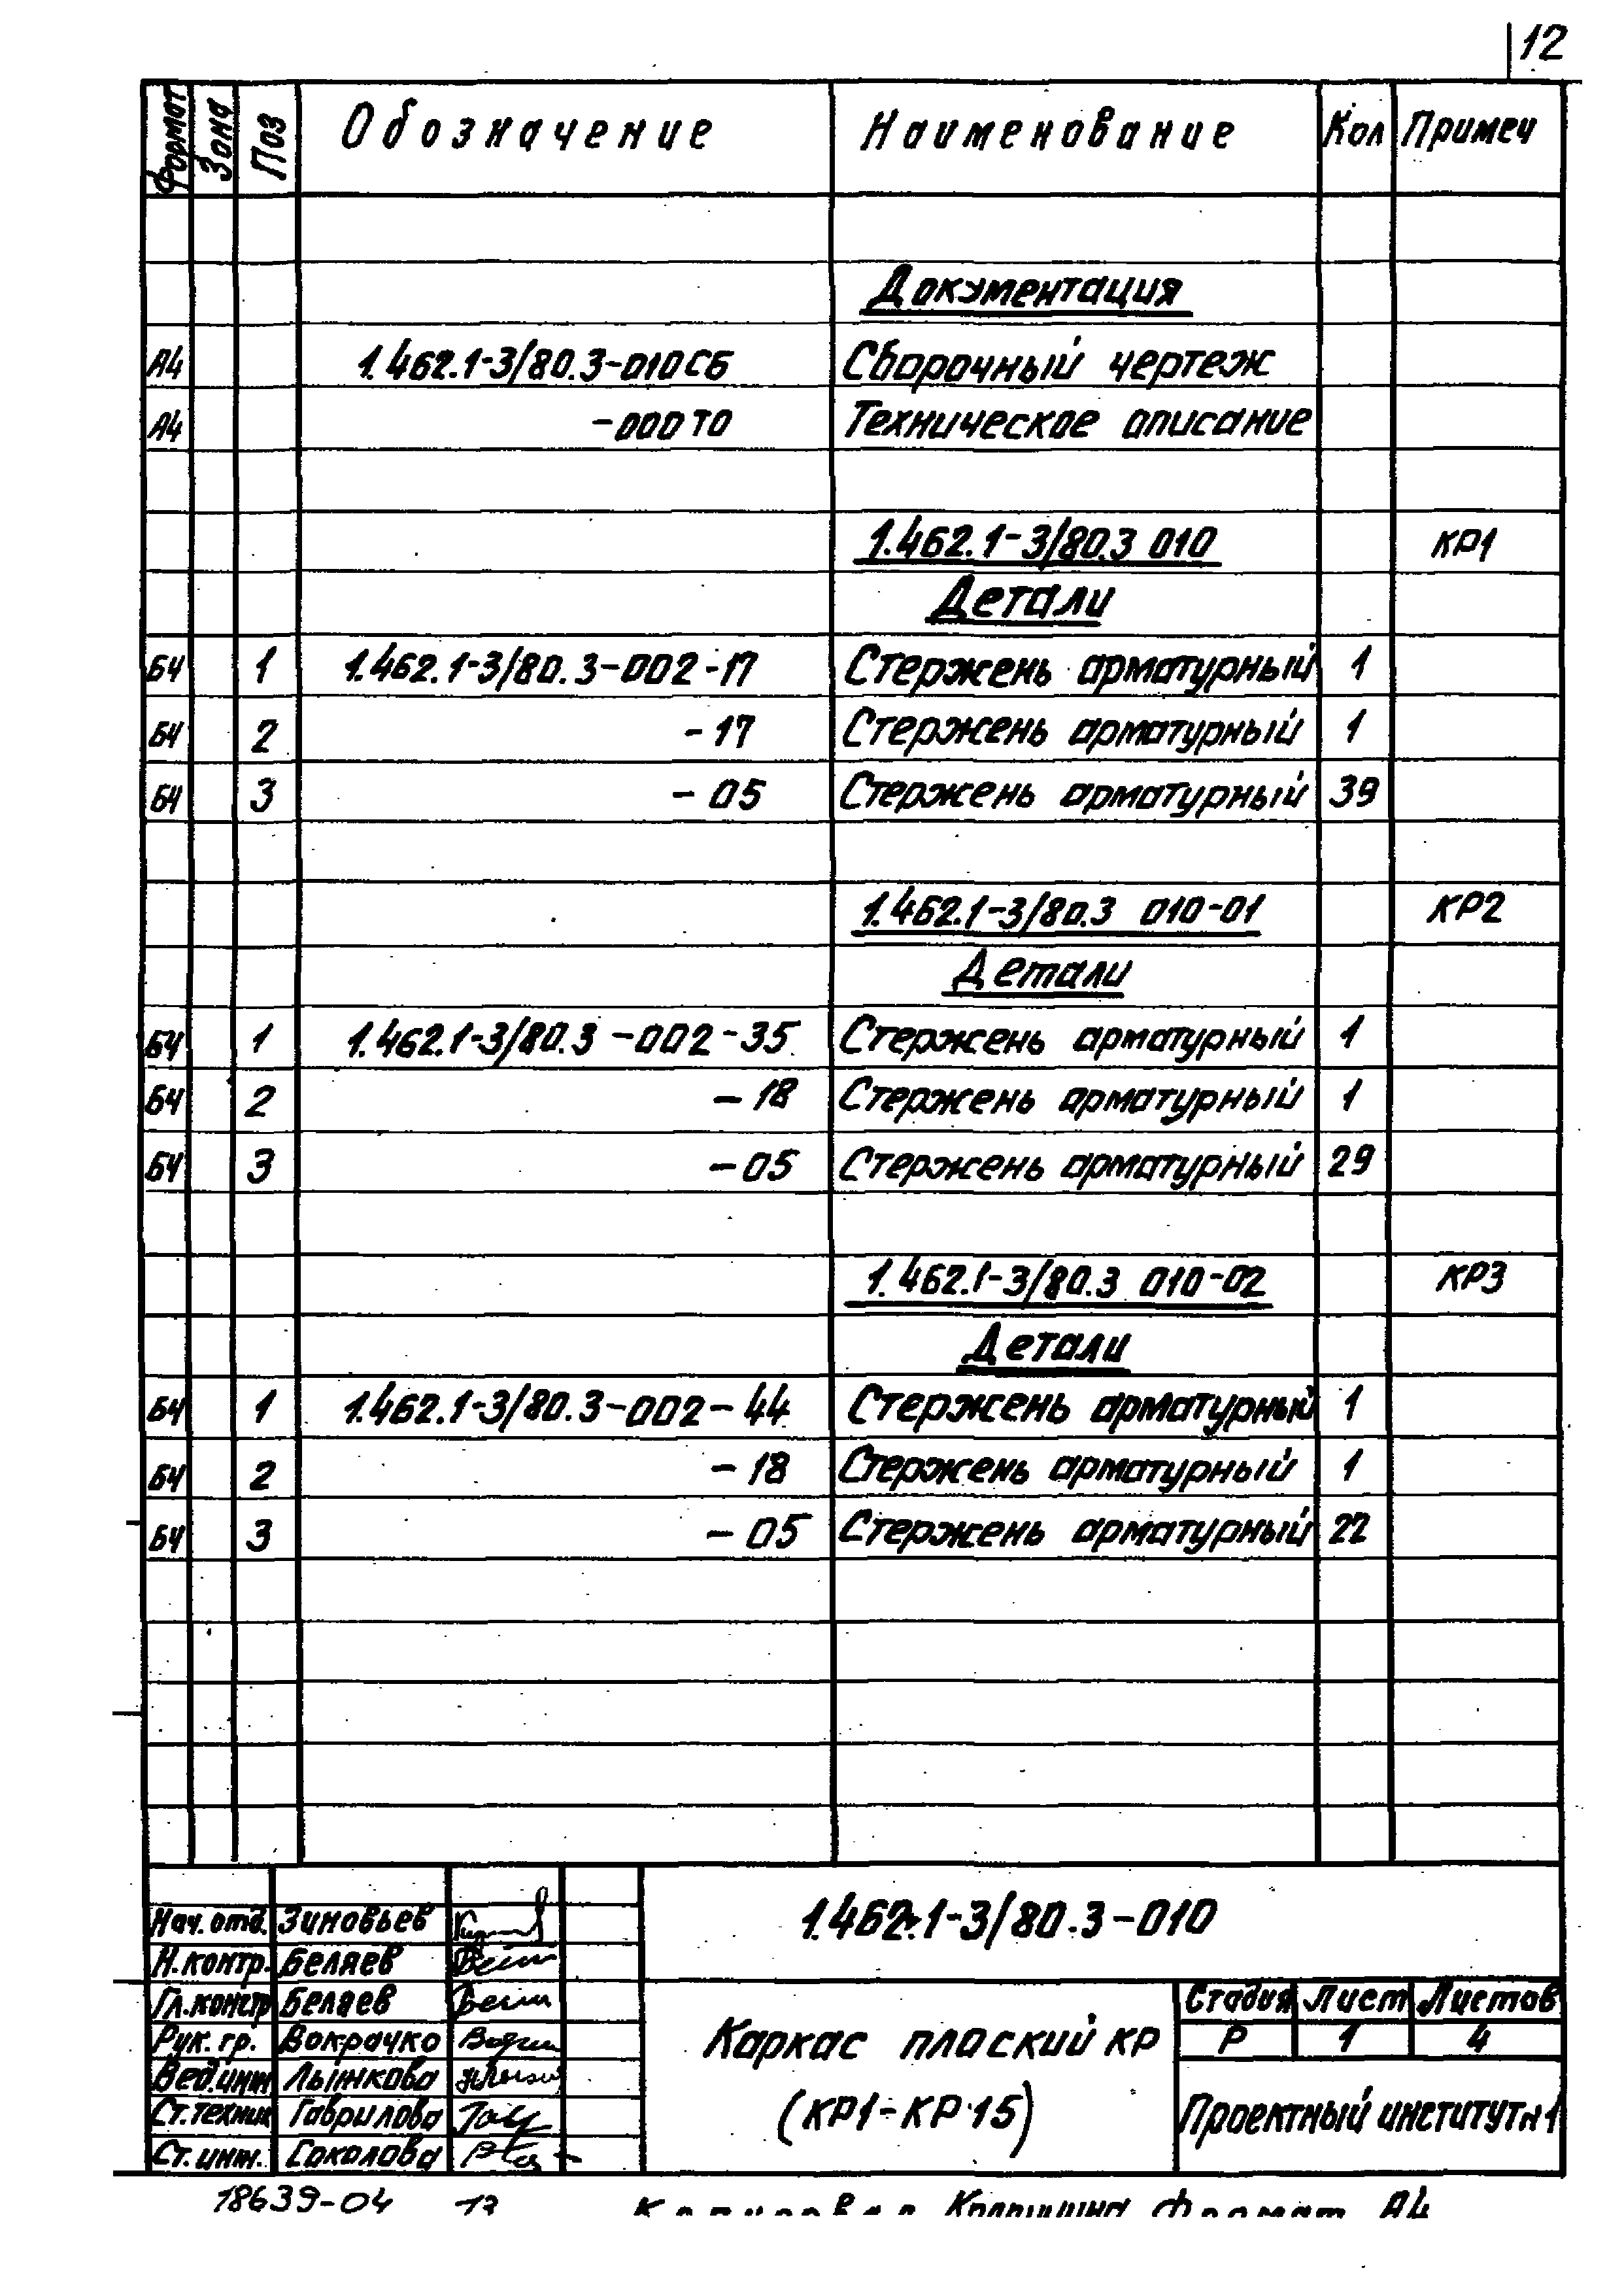 12
Формат Зона Поз Обозначение Наименование Кол Примеч
Документация
А4 1.462.1-3/80.3-010СБ Сборочный чертеж
А4 -000ТО Техническое описание
1.462.1-3/80.3 010 КР1
Детали
БЧ 1 1.462.1-3/80.3-002-17 Стержень арматурный 1
БЧ 2 -17 Стержень арматурный 1
БЧ 3 -05 Стержень арматурный 39
1.462.1-3/80.3 010-01 КР2
Детали
БЧ 1 1.462.1-3/80.3-002-35 Стержень арматурный 1
БЧ 2 -18 Стержень арматурный 1
БЧ 3 -05 Стержень арматурный 29
1.462.1-3/80.3 010-02 КР3
Детали
БЧ 1 1.462.1-3/80.3-002-44 Стержень арматурный 1
БЧ 2 -18 Стержень арматурный 1
БЧ 3 -05 Стержень арматурный 22
1.462.1-3/80.3-010
Нач.отд. Зиновьев
Н.контр. Беляев
Гл.констр Беляев
Рук.гр. Вокрачко
Вед.инж Лыжкова
Ст.техник Гаврилова
Ст.инж. Соколова
Каркас плоский КР
(КР1-КР15)
Стадия Лист Листов
Р 1 4
Проектный институт №1
18639-04 13 Копировал Формат А4